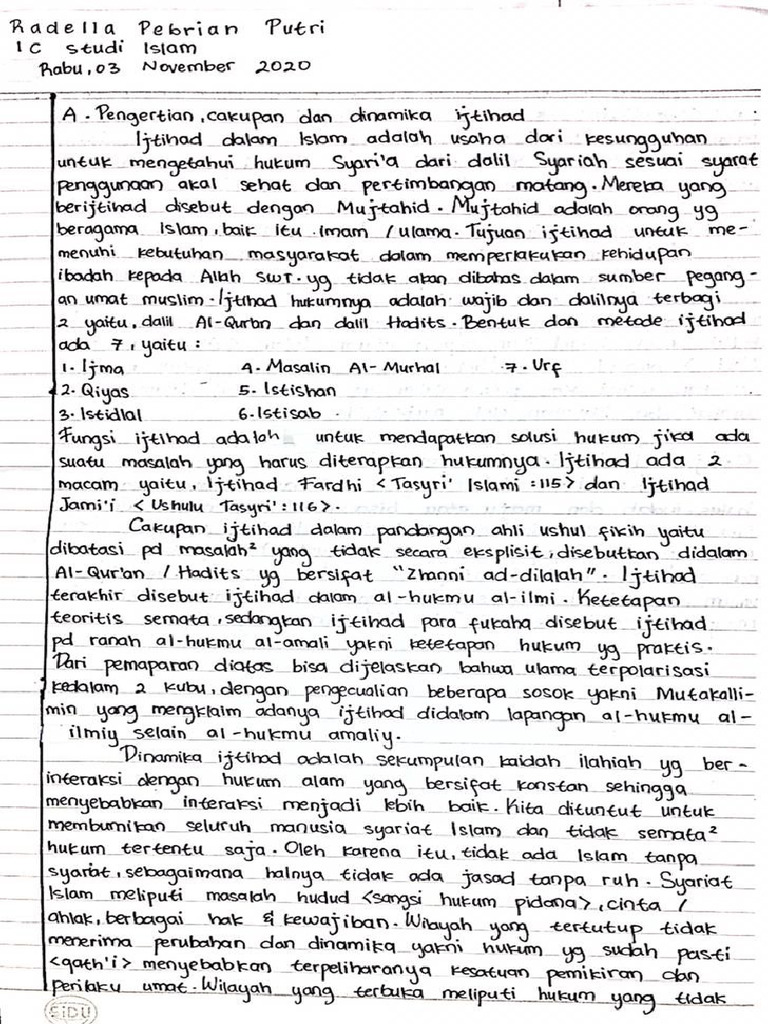 Radella Pebrian Putri
1C Studi Islam
Rabu, 03 November 2020
A. Pengertian, cakupan dan dinamika ijtihad
Ijtihad dalam Islam adalah usaha dari kesungguhan
untuk mengetahui hukum Syari'a dari dalil Syariah sesuai syarat
penggunaan akal sehat dan pertimbangan matang. Mereka yang
berijtihad disebut dengan Mujtahid. Mujtahid adalah orang yg
beragama Islam, baik itu imam / ulama. Tujuan ijtihad untuk me-
menuhi kebutuhan masyarakat dalam memperlakukan kehidupan
ibadah kepada Allah SWT. yg tidak akan dibahas dalam sumber pegang-
an umat muslim. Ijtihad hukumnya adalah wajib dan dalilnya terbagi
2 yaitu, dalil Al-Qur'an dan dalil Hadits. Bentuk dan metode ijtihad
ada 7, yaitu :
1. Ijma 4. Masalin Al-Murhal 7. Urf
2. Qiyas 5. Istishan
3. Istidlal 6. Istisab.
Fungsi ijtihad adalah untuk mendapatkan solusi hukum jika ada
suatu masalah yang harus diterapkan hukumnya. Ijtihad ada 2
macam yaitu, Ijtihad Fardhi <Tasyri' Islami : 115> dan Ijtihad
Jami'i <Ushulu Tasyri' : 116>.
Cakupan ijtihad dalam pandangan ahli ushul fikih yaitu
dibatasi pd masalah² yang tidak secara eksplisit, disebutkan didalam
Al-Qur'an / Hadits yg bersifat "Zhanni ad-dilalah". Ijtihad
terakhir disebut ijtihad dalam al-hukmu al-ilmi. Ketetapan
teoritis semata, sedangkan ijtihad para fukaha disebut ijtihad
pd ranah al-hukmu al-amali yakni ketetapan hukum yg praktis.
Dari pemaparan diatas bisa dijelaskan bahwa ulama terpolarisasi
kedalam 2 kubu, dengan pengecualian beberapa sosok yakni Mutakalli-
min yang mengklaim adanya ijtihad didalam lapangan al-hukmu al-
ilmiy selain al-hukmu amaliy.
Dinamika ijtihad adalah sekumpulan kaidah ilahiah yg ber-
interaksi dengan hukum alam yang bersifat konstan sehingga
menyebabkan interaksi menjadi lebih baik. Kita dituntut untuk
membumikan seluruh manusia syariat Islam dan tidak semata²
hukum tertentu saja. Oleh karena itu, tidak ada Islam tanpa
syariat, sebagaimana halnya tidak ada jasad tanpa ruh. Syariat
Islam meliputi masalah hudud <sangsi hukum pidana>, cinta /
ahlak, berbagai hak & kewajiban. Wilayah yang tertutup tidak
menerima perubahan dan dinamika yakni hukum yg sudah pasti
<qath'i> menyebabkan terpeliharanya kesatuan pemikiran dan
perilaku umat. Wilayah yang terbuka meliputi hukum yang tidak
SiDU